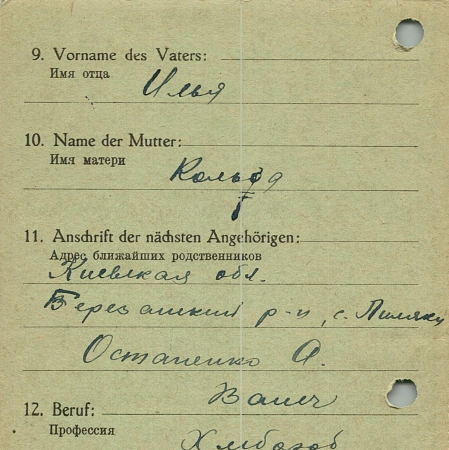 9. Vorname des Vaters:
Имя отца
Илья
10. Name der Mutter:
Имя матери
11. Anschrift der nächsten Angehörigen:
Адрес ближайших родственников
Киевская обл.
р-н, с. Пиляки
Остапенко А.
12. Beruf:
Профессия